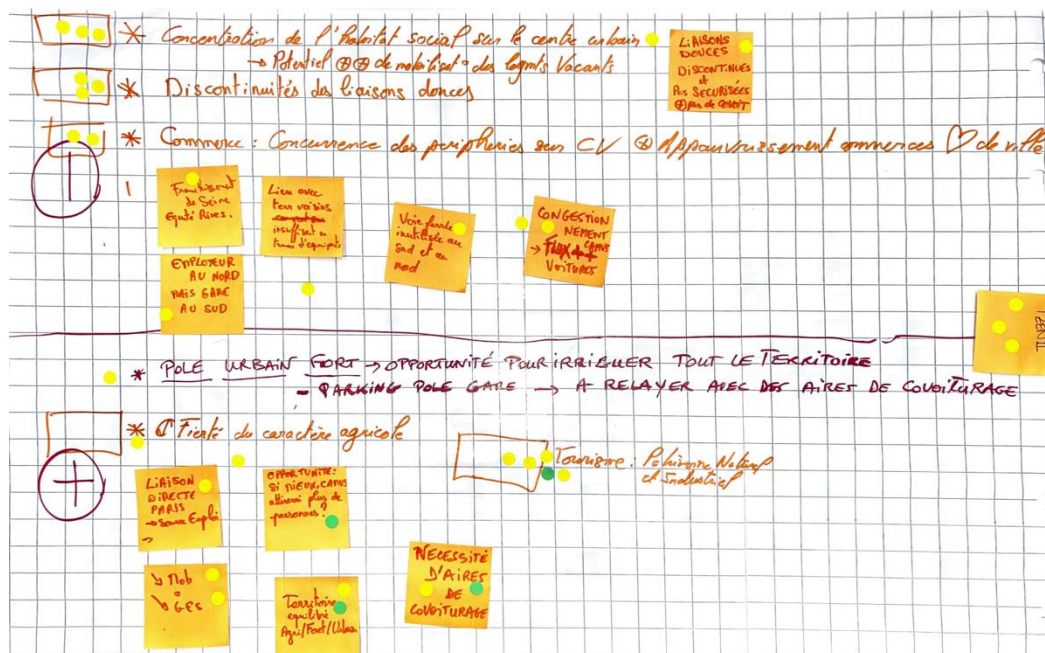 * Concentration de l'habitat social sur le centre urbain
→ Potentiel ⊕⊕ de mobilisat° des logmts Vacants
* Discontinuités des liaisons douces
LIAISONS
DOUCES
DISCONTINUES
et
Pas SECURISÉES
⊕ pas de covoit
* Commerce : Concurrence des peripheries sur CV ⊕ Appauvrissement commerces ♡ de ville
Franchissement
de Seine
Equité Rives.
Lien avec
terr voisins
insuffisant en
termes d'equipmts
Voie ferrée
inutilisée au
sud et au
nord
CONGESTION
NEMENT
→ Flux ++ CAMIONS
VOITURES
EMPLOYEUR
AU NORD
MAIS GARE
AU SUD
* POLE URBAIN FORT → OPPORTUNITÉ POUR IRRIGUER TOUT LE TERRITOIRE
- PARKING POLE GARE → A RELAYER AVEC DES AIRES DE COVOITURAGE
+
* Fierté du caractère agricole
Tourisme : Patrimoine Naturel
et Industriel
LIAISON
DIRECTE
PARIS
→ Source Emploi
OPPORTUNITÉ :
SI MIEUX,
attirerai plus de
personnes ?
↘ Mob
↘ GES
Territoire
equilibré
Agri/Foret/Urbain
NECESSITÉ
D'AIRES
DE
COVOITURAGE